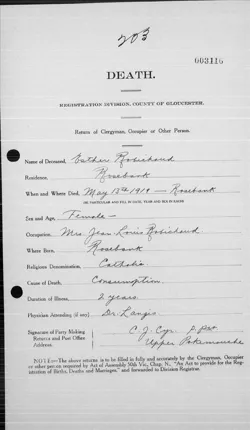 203
003116
DEATH.
REGISTRATION DIVISION, COUNTY OF GLOUCESTER.
Return of Clergyman, Occupier or Other Person.
Name of Deceased, Esther Robichaud
Residence, Rosebank
When and Where Died, May 13th 1919 — Rosebank
(BE PARTICULAR AND FILL IN DATE, YEAR AND SEX IN EACH)
Sex and Age, Female —
Occupation, Mrs. Jean Louis Robichaud
Where Born, Rosebank
Religious Denomination, Catholic
Cause of Death, Consumption
Duration of Illness, 2 years
Physician Attending (if any) Dr. Langis
Signature of Party Making
Return and Post Office
Address,
C. J. Cyr.
Upper Pokemouche
NOTE:—The above returns is to be filled in fully and accurately by the Clergyman, Occupier
or other person required by Act of Assembly 50th Vic., Chap. "An Act to provide for the Reg-
istration of Births, Deaths and Marriages," and forwarded to Division Registrar.